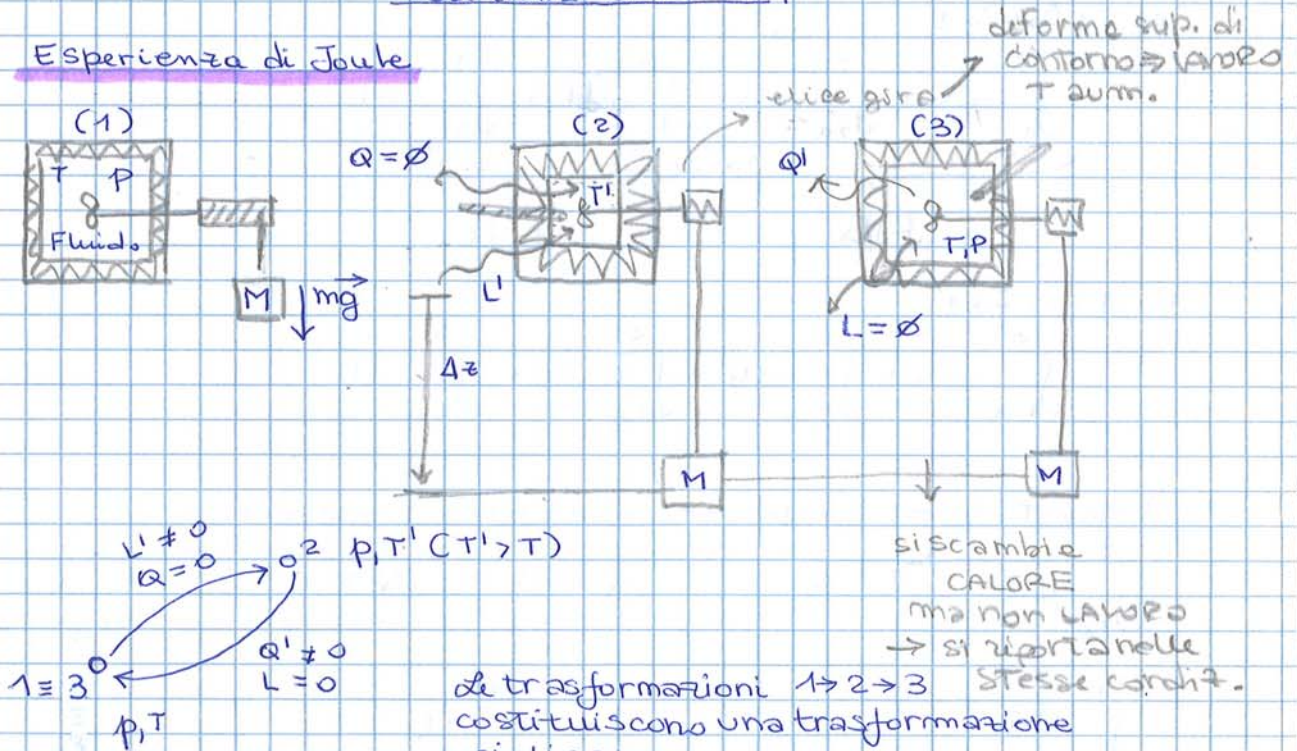 Esperienza di Joule
deforma sup. di
contorno ⇒ LAVORO
T aum.
elice gira
(1)
(2)
(3)
T P
Fluido
M
mg
Q = ∅
T'
L'
Δz
M
Q'
T,P
L = ∅
M
L' ≠ 0
Q = 0
2 p,T' (T' > T)
Q' ≠ 0
L = 0
1 ≡ 3
p,T
si scambia
CALORE
ma non LAVORO
→ si riporta nelle
STESSE condiz.
Le trasformazioni 1→2→3
costituiscono una trasformazione